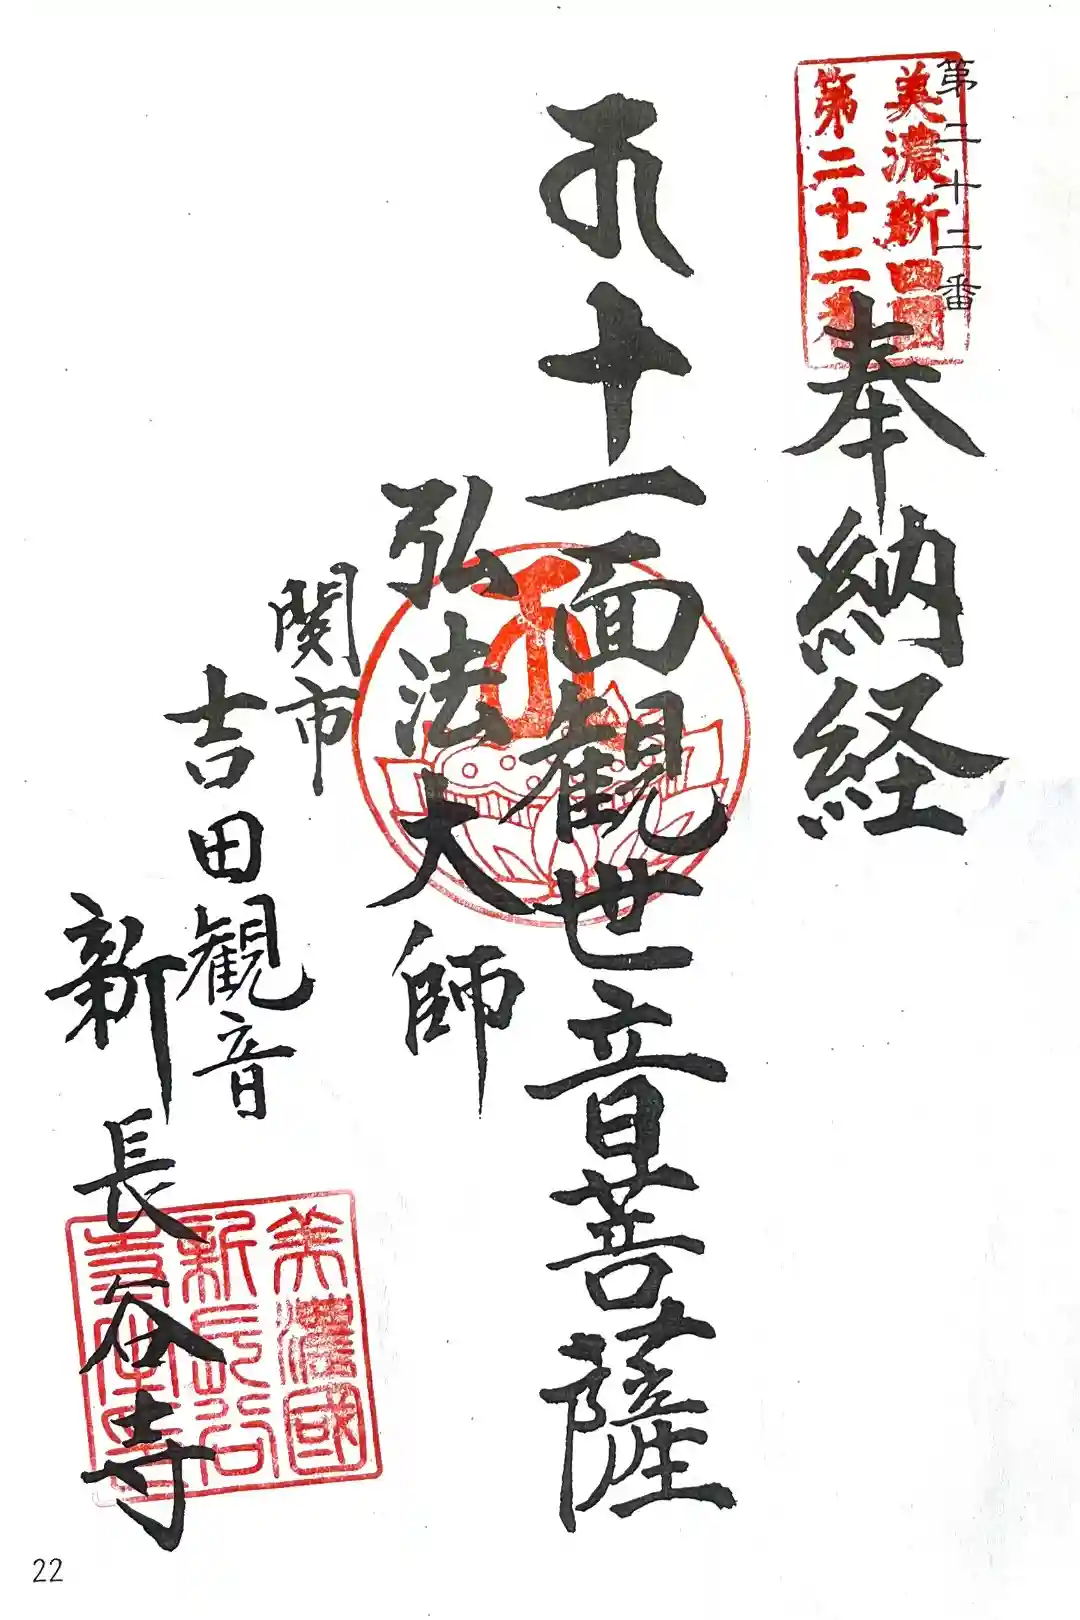 第二十二番
美濃新四国
第二十二番
奉納経
十一面観世音菩薩
弘法大師
関市
吉田観音
新長谷寺
美濃國
新長谷
寺住職
22